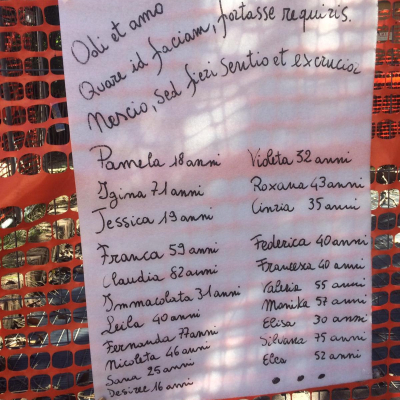 Odi et amo
Quare id faciam, fortasse requiris.
Nescio, sed fieri sentio et excrucior
Pamela 18 anni
Igina 71 anni
Jessica 19 anni
Franca 59 anni
Claudia 82 anni
Immacolata 31 anni
Leila 40 anni
Fernanda 77 anni
Nicoleta 46 anni
Sana 25 anni
Desirée 16 anni
Violeta 32 anni
Roxana 43 anni
Cinzia 35 anni
Federica 40 anni
Francesca 40 anni
Valeria 55 anni
Monika 57 anni
Elisa 30 anni
Silvana 75 anni
Elca 52 anni